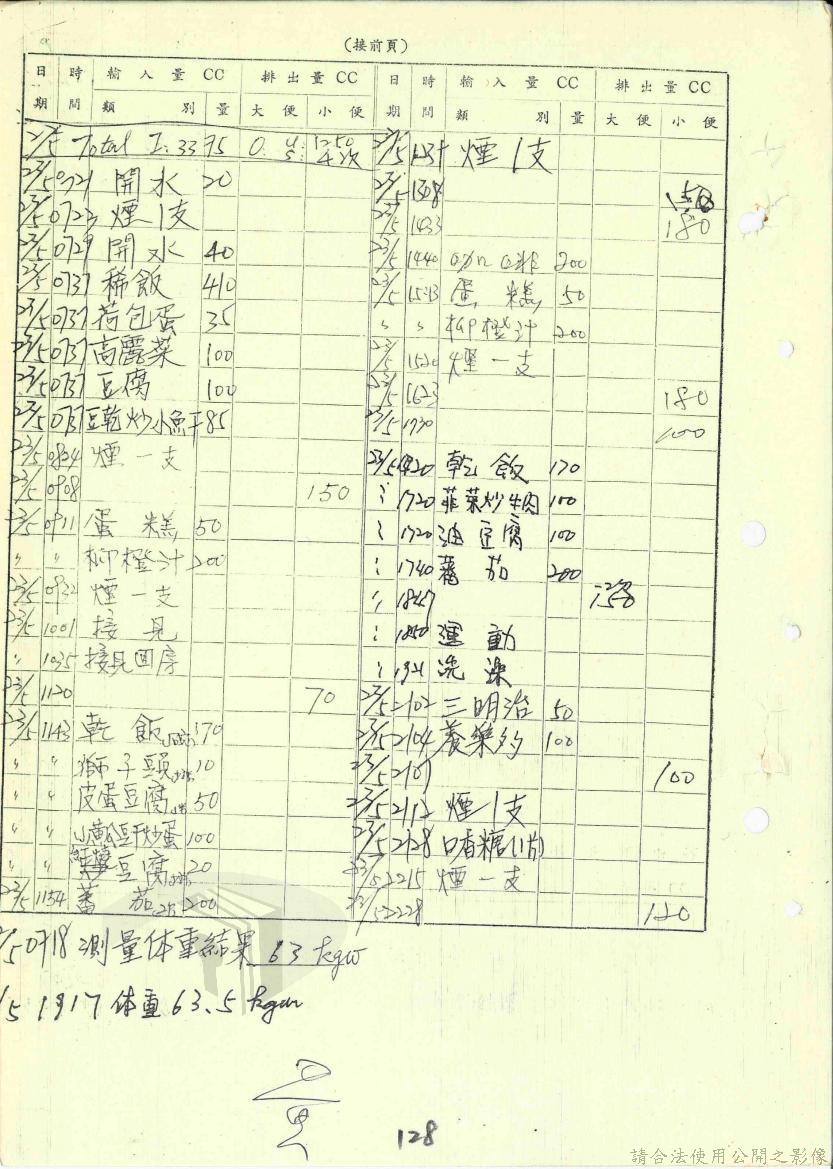 (接前頁)
日期 時間 輸入量 CC 類別 量 排出量 CC 大便 小便 日期 時間 輸入量 CC 類別 量 排出量 CC 大便 小便
Total I: 3375 O. U: 1250 S: 4次
23/5 0721 開水 20
23/5 0723 煙1支
23/5 0729 開水 40
23/5 0737 稀飯 410
23/5 0737 荷包蛋 35
23/5 0737 高麗菜 100
23/5 0737 豆腐 100
23/5 0737 豆乾炒小魚干 85
23/5 0834 煙一支
23/5 0908 150
23/5 0911 蛋糕 50
〃 〃 柳橙汁 200
23/5 0932 煙一支
23/5 1001 接見
〃 1035 接見回房
23/5 1120 70
23/5 1143 乾飯 170
〃 〃 獅子頭 10
〃 〃 皮蛋豆腐 50
〃 〃 小黃瓜豆干炒蛋 100
〃 〃 豆腐 20
23/5 1154 蕃茄 200
23/5 煙1支
23/5 1308
23/5 1433 180
23/5 1440 200
23/5 1513 蛋糕 50
〃 〃 柳橙汁 200
23/5 1520 煙一支
23/5 1623 180
23/5 1730 100
23/5 乾飯 170
〃 1720 韮菜炒牛肉 100
〃 1720 油豆腐 100
〃 1740 蕃茄 200
〃 1847
〃 1850 運動
〃 1921 洗澡
23/5 2102 三明治 50
23/5 2104 養樂多 100
23/5 2107 100
23/5 2112 煙1支
23/5 2128 口香糖(1片)
23/5 2215 煙一支
23/5 2228 120
/5 0718 測量体重結果 63 kgw
/5 1917 体重 63.5 kgw
128
請合法使用公開之影像